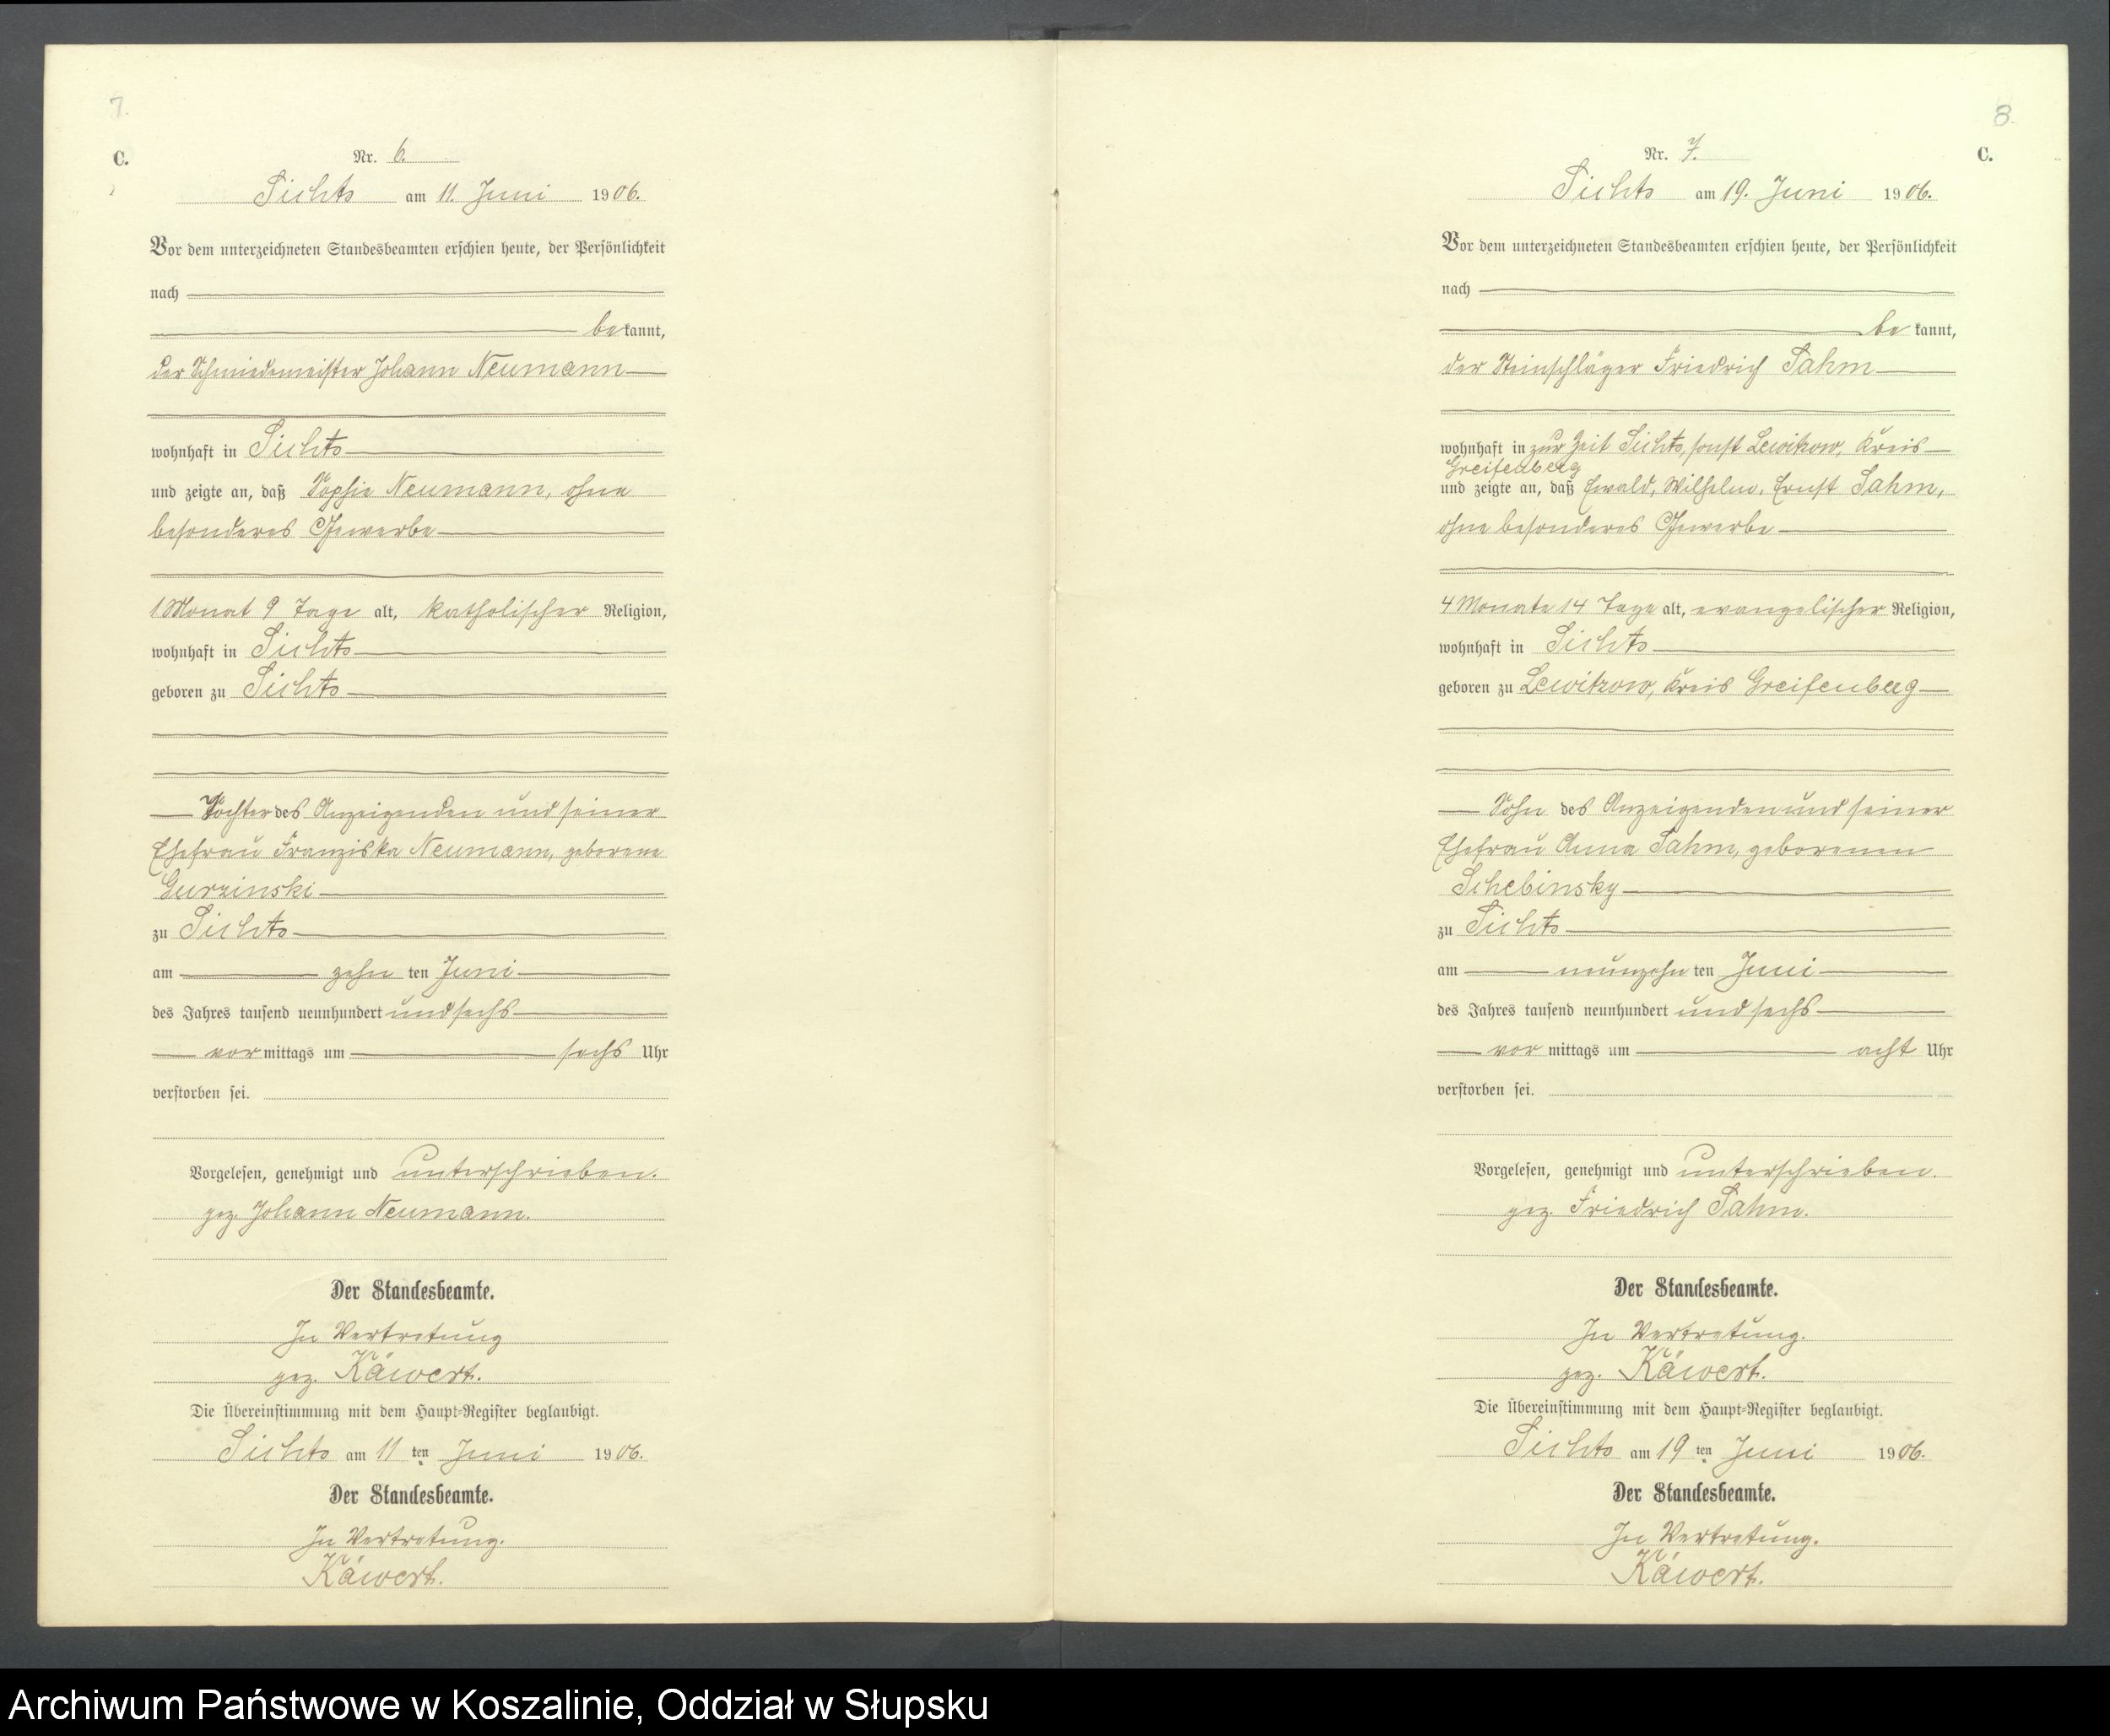 7.
C.
Nr. 6.
Sichts am 11. Juni 1906.
Vor dem unterzeichneten Standesbeamten erschien heute, der Persönlichkeit
nach
bekannt,
der Schmiedemeister Johann Neumann
wohnhaft in Sichts
und zeigte an, daß Sophie Neumann, ohne
besonderes Gewerbe
1 Monat 9 Tage alt, katholischer Religion,
wohnhaft in Sichts
geboren zu Sichts
Tochter des Anzeigenden und seiner
Ehefrau Franziska Neumann, geborene
Gurzinski
zu Sichts
am zehn ten Juni
des Jahres tausend neunhundert und sechs
vormittags um sechs Uhr
verstorben sei.
Vorgelesen, genehmigt und unterschrieben.
gez. Johann Neumann.
Der Standesbeamte.
In Vertretung
gez. Käwert.
Die Übereinstimmung mit dem Haupt-Register beglaubigt.
Sichts am 11 ten Juni 1906.
Der Standesbeamte.
In Vertretung.
Käwert.
8.
C.
Nr. 7.
Sichts am 19. Juni 1906.
Vor dem unterzeichneten Standesbeamten erschien heute, der Persönlichkeit
nach
bekannt,
der Steinschläger Friedrich Sahm
wohnhaft in zur Zeit Sichts, sonst Lewitzow, Kreis
Greifenberg
und zeigte an, daß Ewald, Wilhelm, Ernst Sahm,
ohne besonderes Gewerbe
4 Monate 14 Tage alt, evangelischer Religion,
wohnhaft in Sichts
geboren zu Lewitzow, Kreis Greifenberg
Sohn des Anzeigenden und seiner
Ehefrau Anna Sahm, geborenen
Schebinsky
zu Sichts
am neunzehn ten Juni
des Jahres tausend neunhundert und sechs
vor mittags um acht Uhr
verstorben sei.
Vorgelesen, genehmigt und unterschrieben.
gez. Friedrich Sahm.
Der Standesbeamte.
In Vertretung.
gez. Käwert.
Die Übereinstimmung mit dem Haupt-Register beglaubigt.
Sichts am 19 ten Juni 1906.
Der Standesbeamte.
In Vertretung.
Käwert.
Archiwum Państwowe w Koszalinie, Oddział w Słupsku